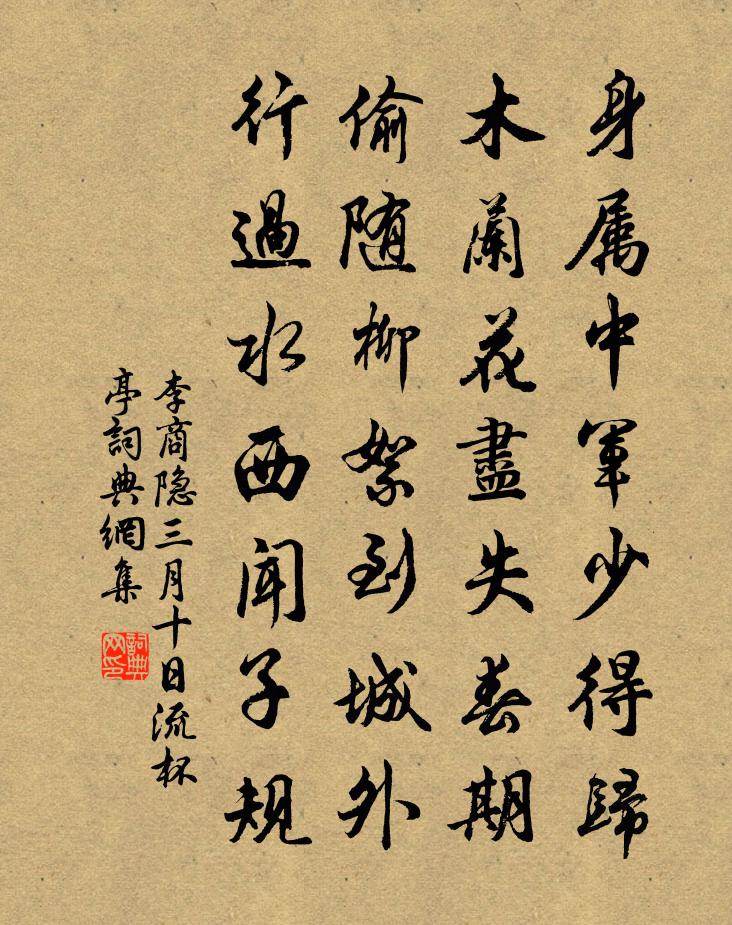 身属中军少得歸
木蘭花盡失春期
偷随柳絮到城外
行過水西闻子规
李商隐三月十日流杯
亭詞典網集
詞典
网印